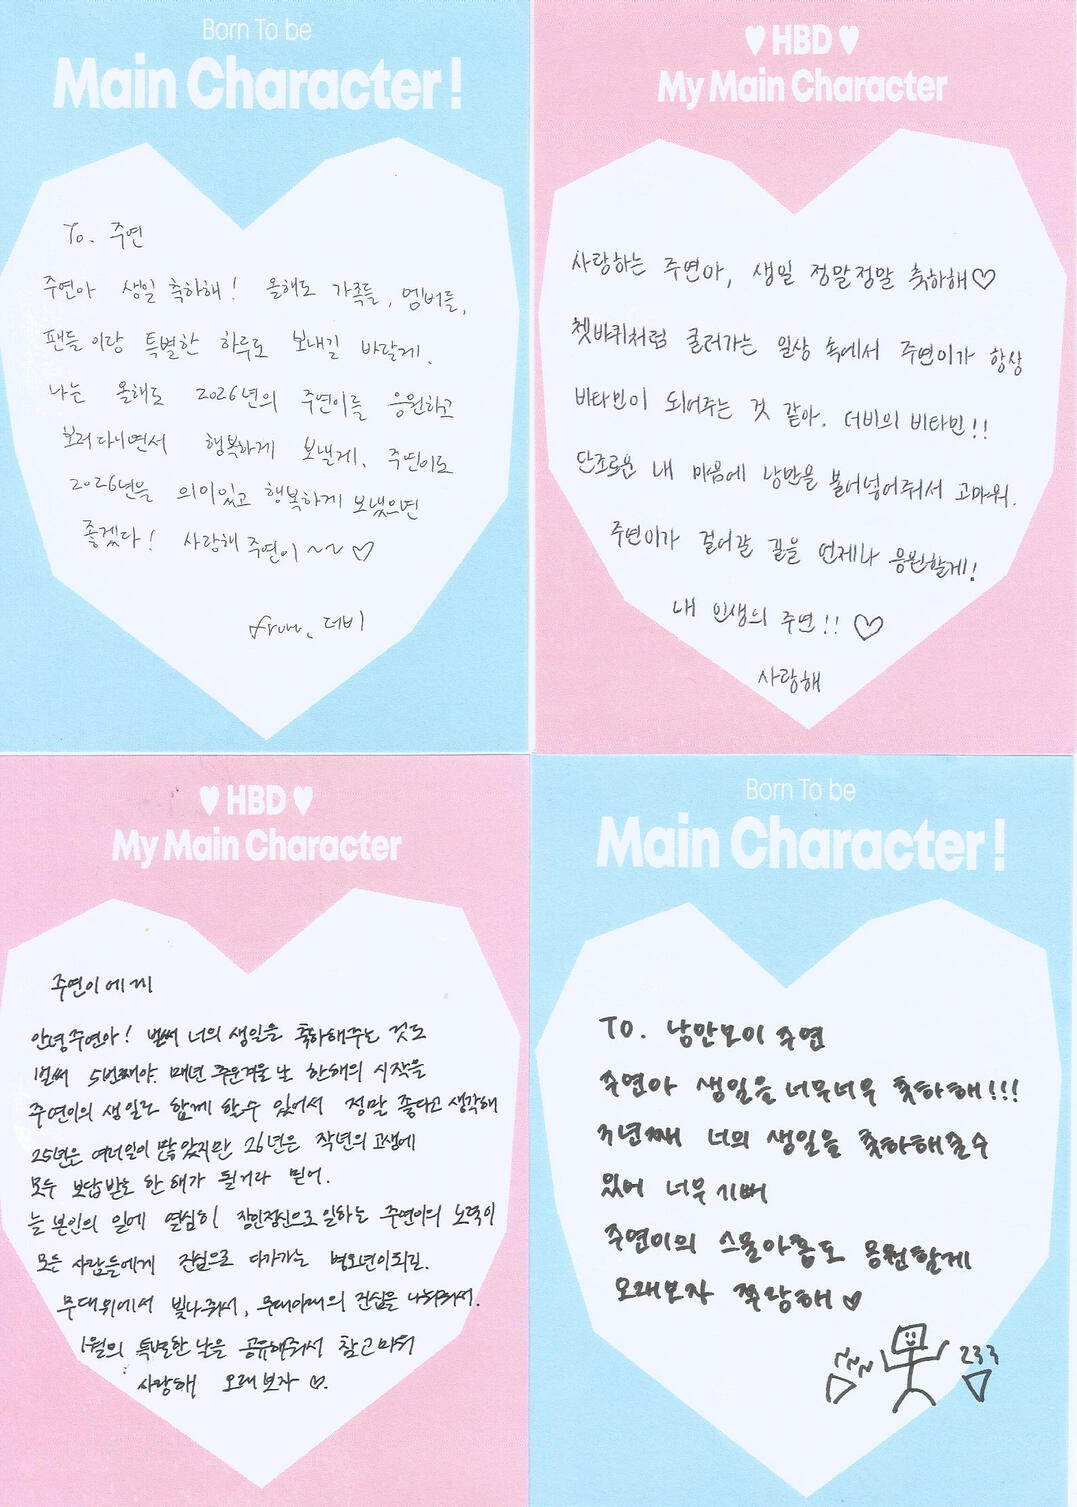 Born To be
Main Character!
To. 주연
주연아 생일 축하해! 올해도 가족들, 멤버들,
팬들이랑 특별한 하루도 보내길 바랄게.
나는 올해도 2026년의 주연이를 응원하고
보러다니면서 행복하게 보낼게. 주연이도
2026년을 의미있고 행복하게 보냈으면
좋겠다! 사랑해 주연이 ~~ ♡
from. 더비
♥ HBD ♥
My Main Character
사랑하는 주연아, 생일 정말정말 축하해♡
쳇바퀴처럼 굴러가는 일상 속에서 주연이가 항상
비타민이 되어주는 것 같아. 더비의 비타민!!
단조로운 내 마음에 낭만을 불어넣어줘서 고마워.
주연이가 걸어갈 길을 언제나 응원할게!
내 인생의 주연!! ♡
사랑해
♥ HBD ♥
My Main Character
주연이에게
안녕 주연아! 벌써 너의 생일을 축하해주는 것도
벌써 5번째야. 매년 추운겨울날 한해의 시작을
주연이의 생일로 함께 할수 있어서 정말 좋다고 생각해
25년은 여러일이 많았지만 26년은 작년의 고생에
모두 보답받는 한 해가 될거라 믿어.
늘 본인의 일에 열심히 장인정신으로 일하는 주연이의 노력이
모든 사람들에게 진심으로 다가가는 병오년이되길.
무대위에서 빛나줘서, 무대아래의 진심을 나눠줘서.
1월의 특별한 날을 공유해줘서 참고마워
사랑해 오래보자 ♡.
Born To be
Main Character!
TO. 낭만보이 주연
주연아 생일을 너무너무 축하해!!!
n년째 너의 생일을 축하해줄수
있어 너무 기뻐
주연이의 스물아홉도 응원할게
오래보자 쭈랑해 ♡